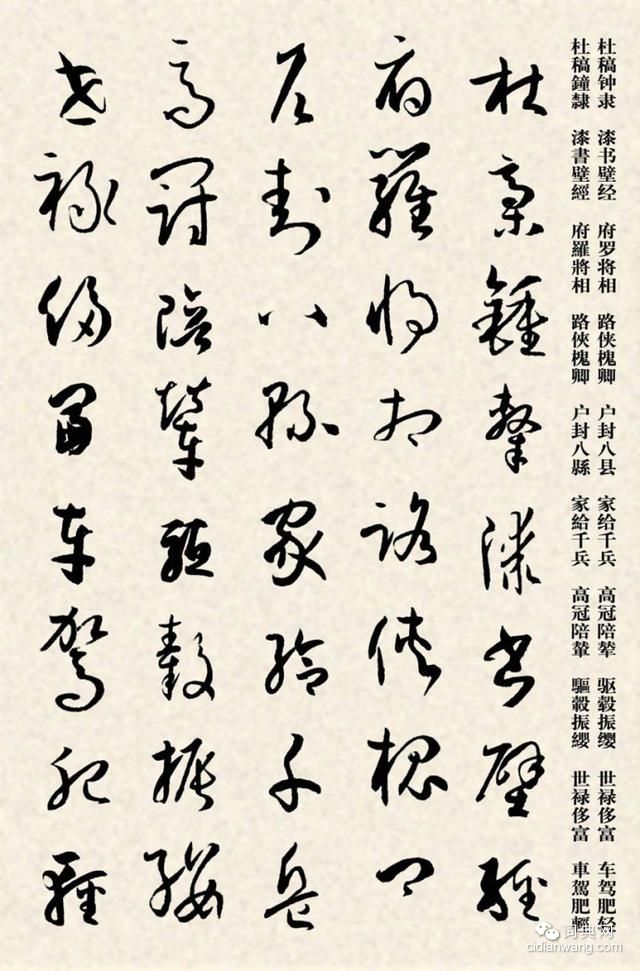 杜稿钟隶 漆书壁经 府罗将相 路侠槐卿 户封八县 家给千兵 高冠陪辇 驱毂振缨 世禄侈富 车驾肥轻
杜稿鐘隸 漆書壁經 府羅將相 路俠槐卿 户封八縣 家給千兵 高冠陪輦 驅轂振纓 世禄侈富 車駕肥輕
杜稾鍾隸漆書壁經
府羅將相路俠槐卿
户封八縣家給千兵
高冠陪輦驅轂振纓
世禄侈富車駕肥輕
词典网
cidianwang.com